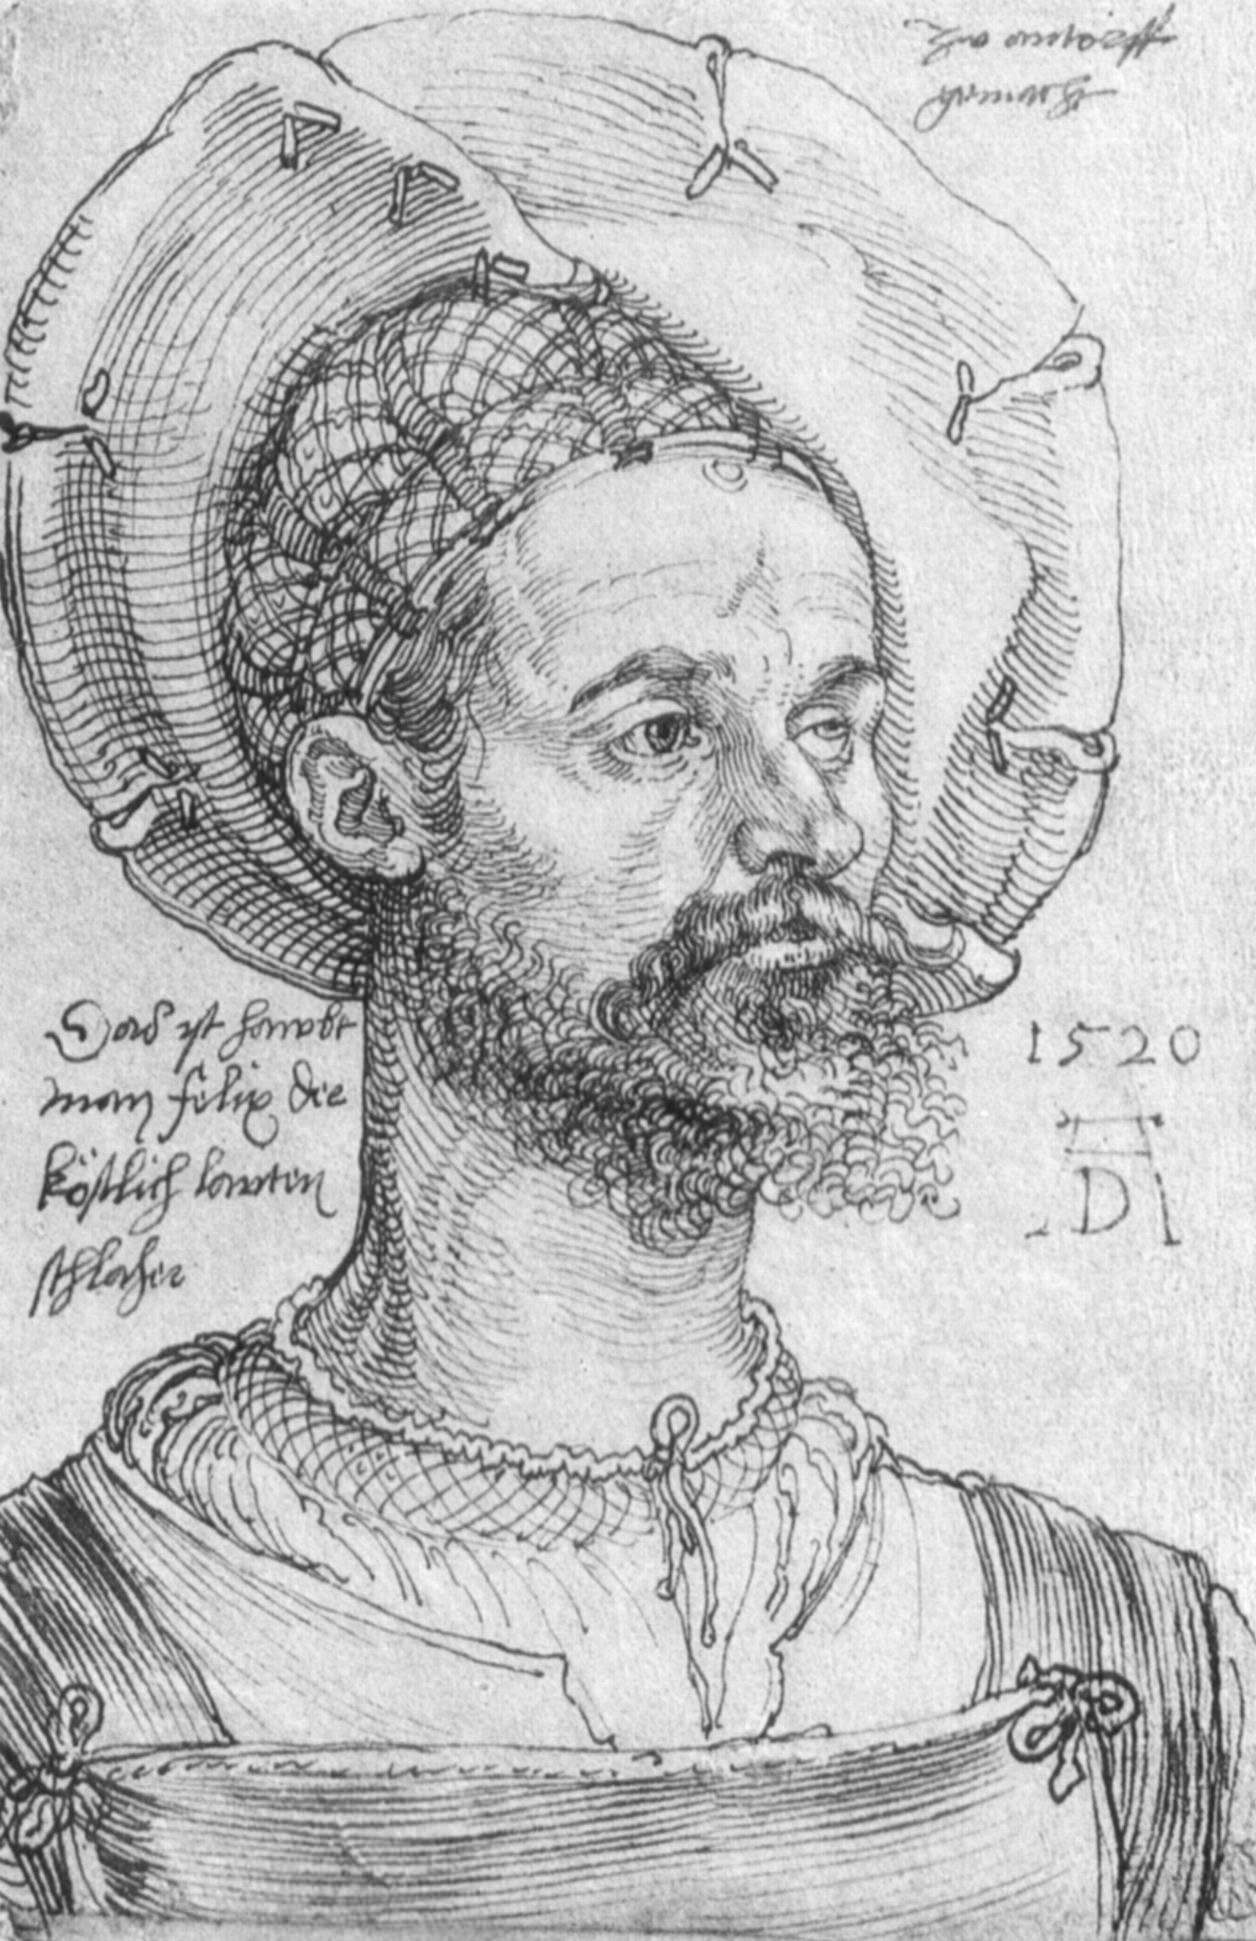 zw antorff
gemacht
Das ist hawbt
man felix der
köstlich lawten
schlaher
1520
AD